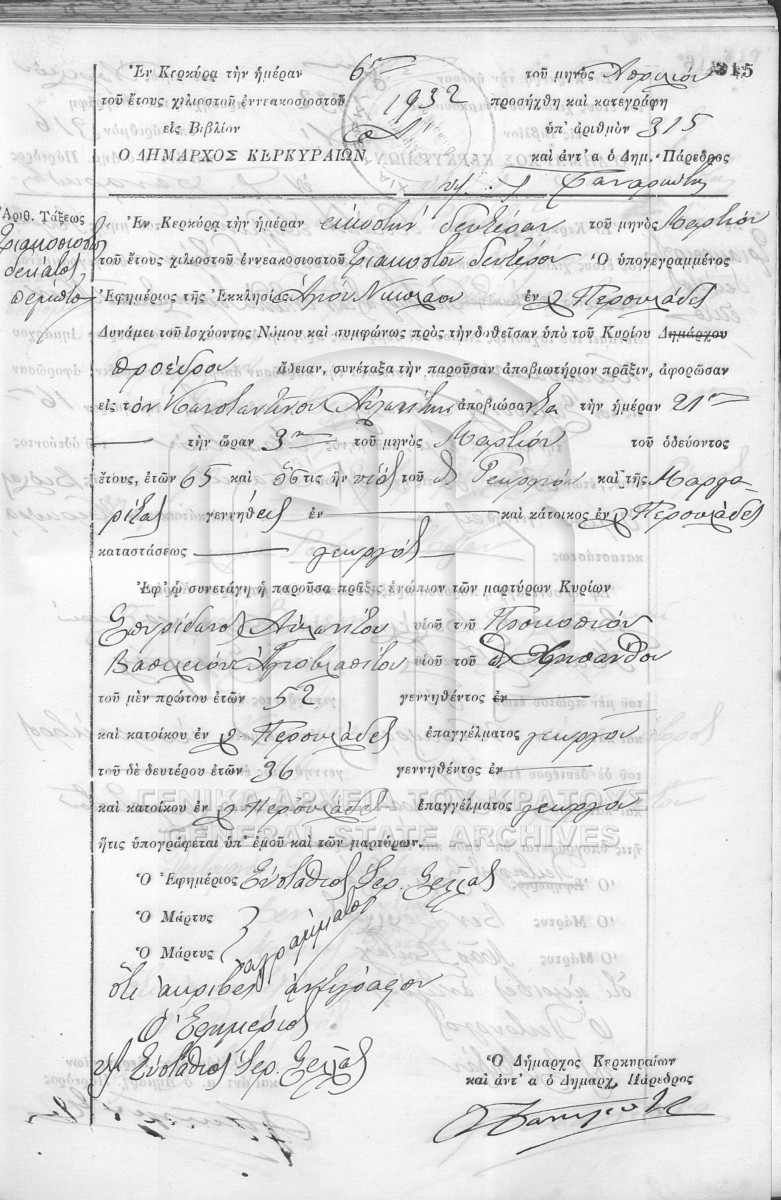 315
Ἐν Κερκύρᾳ τὴν ἡμέραν 6ην τοῦ μηνὸς Ἀπριλίου
τοῦ ἔτους χιλιοστοῦ ἐννεακοσιοστοῦ 1932 προσήχθη καὶ κατεγράφη
εἰς Βιβλίον ὑπ' ἀριθμὸν 315
Ο ΔΗΜΑΡΧΟΣ ΚΕΡΚΥΡΑΙΩΝ καὶ ἀντ' α ὁ Δημ. Πάρεδρος
Ἀριθ. Τάξεως
Τριακοσιοστὸς
δέκατος
πέμπτος
Ἐν Κερκύρᾳ τὴν ἡμέραν εἰκοστὴν δευτέραν τοῦ μηνὸς Μαρτίου
τοῦ ἔτους χιλιοστοῦ ἐννεακοσιοστοῦ τριακοστοῦ δευτέρου Ὁ ὑπογεγραμμένος
Ἐφημέριος τῆς Ἐκκλησίας Ἁγίου Νικολάου ἐν χ Περουλάδες
Δυνάμει τοῦ ἰσχύοντος Νόμου καὶ συμφώνως πρὸς τὴν δοθεῖσαν ὑπὸ τοῦ Κυρίου Δημάρχου
προέδρου ἄδειαν, συνέταξα τὴν παροῦσαν ἀποβιωτήριον πρᾶξιν, ἀφορῶσαν
εἰς τὸν Κωνσταντῖνον Αὐλωνίτην ἀποβιώσαντα τὴν ἡμέραν 21ην
τὴν ὥραν 3ην τοῦ μηνὸς Μαρτίου τοῦ ὁδεύοντος
ἔτους, ἐτῶν 65 καὶ ὅστις ἦν υἱὸς τοῦ Γεωργίου καὶ τῆς Μαργα
ρίτας γεννηθεὶς ἐν καὶ κάτοικος ἐν χ Περουλάδες
καταστάσεως γεωργὸς
Ἐφ' ᾧ συνετάγη ἡ παροῦσα πρᾶξις ἐνώπιον τῶν μαρτύρων Κυρίων
Σπυρίδωνος Αὐλωνίτου υἱοῦ τοῦ Προκοπίου
Βασιλείου υἱοῦ τοῦ Χρυσάνθου
τοῦ μὲν πρώτου ἐτῶν 52 γεννηθέντος ἐν
καὶ κατοίκου ἐν χ Περουλάδες ἐπαγγέλματος γεωργοῦ
τοῦ δὲ δευτέρου ἐτῶν 36 γεννηθέντος ἐν
καὶ κατοίκου ἐν χ Περουλάδες ἐπαγγέλματος γεωργοῦ
ΓΕΝΙΚΑ ΑΡΧΕΙΑ ΤΟΥ ΚΡΑΤΟΥΣ
GENERAL STATE ARCHIVES
ἥτις ὑπογράφεται ὑπ' ἐμοῦ καὶ τῶν μαρτύρων.
Ὁ Ἐφημέριος Εὐστάθιος Ἱερ. Σελλᾶς
Ὁ Μάρτυς
Ὁ Μάρτυς ἀγράμματοι
ὅτι ἀκριβὲς ἀντίγραφον
Ὁ Ἐφημέριος
Εὐστάθιος Ἱερ. Σελλᾶς
Ὁ Δήμαρχος Κερκυραίων
καὶ ἀντ' α ὁ Δημαρχ. Πάρεδρος